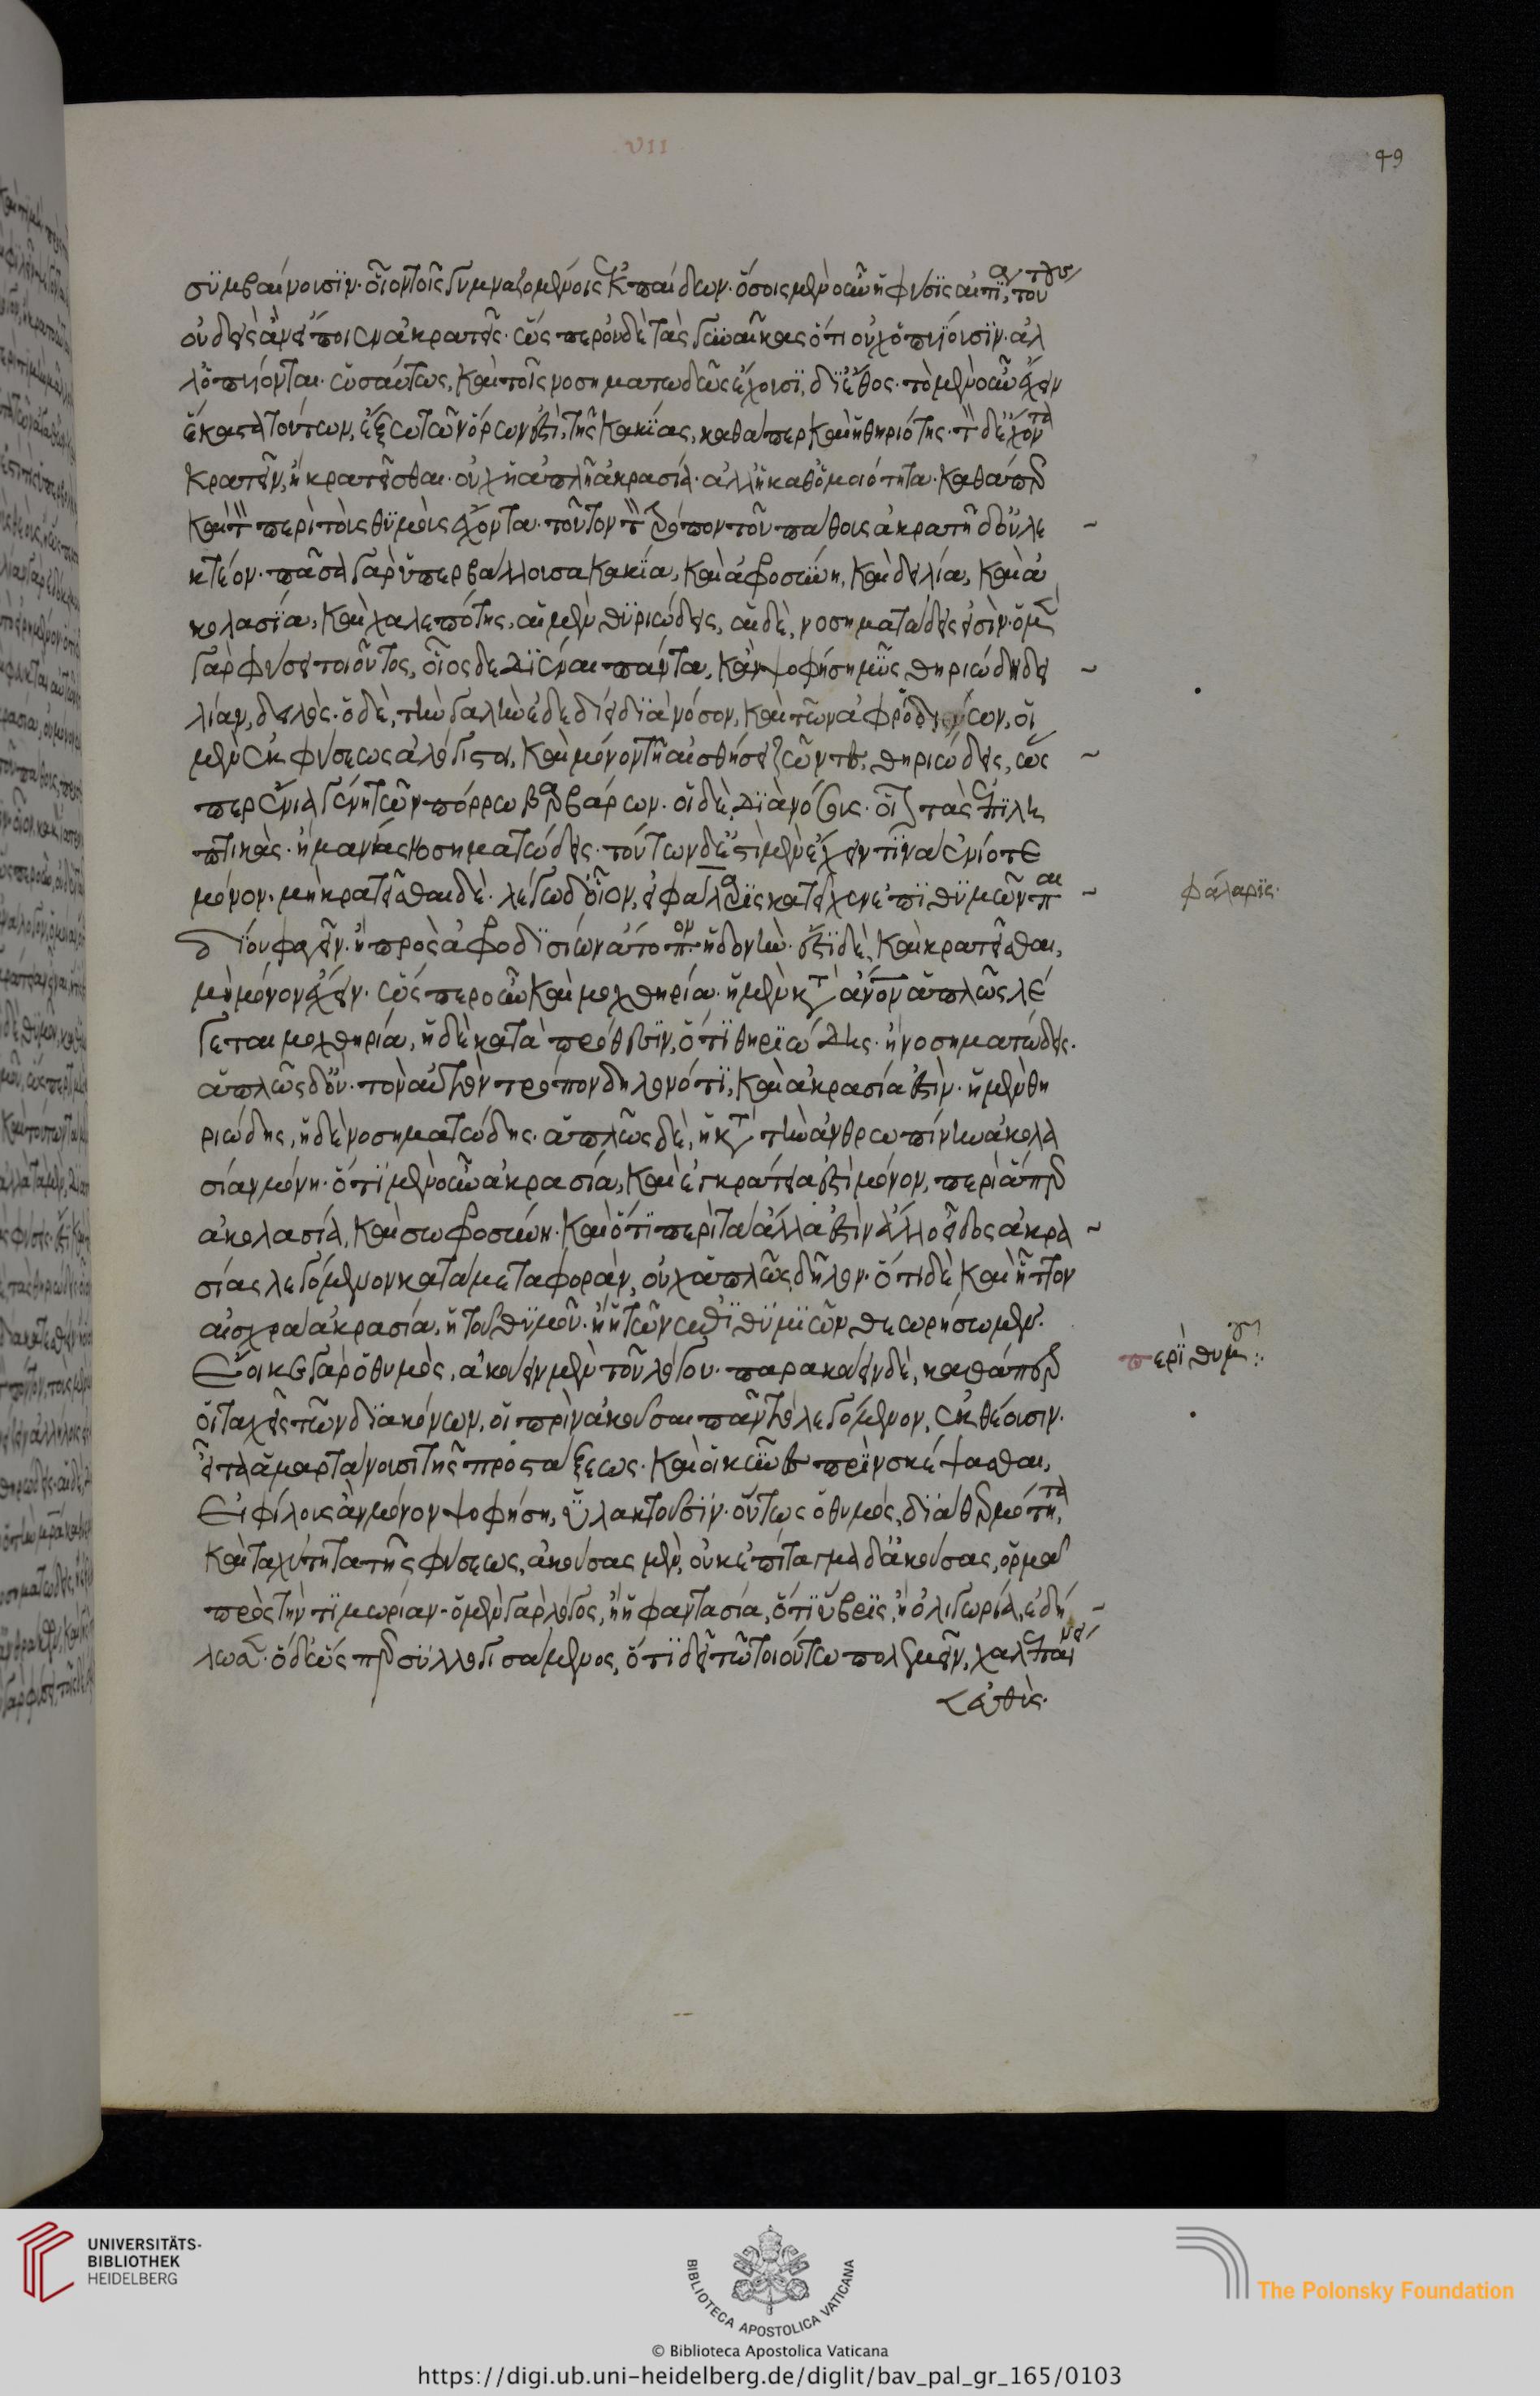 VII
49
συμβαίνουσιν· οἷον τοῖς γυμναζομένοις ἐκ παίδων. ὅσοις μὲν οὖν ἡ φύσις αἰτία, τούτους
οὐδεὶς ἂν εἴποιεν ἀκρατεῖς. ὥσπερ οὐδὲ τὰς γυναῖκας ὅτι οὐχ ὀπυίουσιν· ἀλ
λ' ὀπυίονται. ὡσαύτως, καὶ τοῖς νοσηματωδῶς ἔχουσι, δι' ἔθος. τὸ μὲν οὖν ἔχειν
ἕκαστα τούτων, ἔξω τῶν ὅρων ἐστὶ, τῆς κακίας, καθάπερ καὶ ἡ θηριότης. τὸν δ' ἔχοντα
κρατεῖν, ἢ κρατεῖσθαι. οὐχ ἡ ἁπλῆ ἀκρασία· ἀλλ' ἡ καθ' ὁμοιότητα. καθάπερ
καὶ τὸν περὶ τοὺς θυμοὺς ἔχοντα. τοῦτον τὸν τρόπον τοῦ πάθους ἀκρατῆ δ' οὐ λε
κτέον. πᾶσα γὰρ ὑπερβάλλουσα κακία, καὶ ἀφροσύνη, καὶ δειλία, καὶ ἀ
κολασία, καὶ χαλεπότης, αἱ μὲν θηριώδεις, αἱ δὲ, νοσηματώδεις εἰσίν. ὁ μὲν
γὰρ φύσει τοιοῦτος, οἷος δεδιέναι πάντα, κἂν ψοφήσῃ μῦς θηριώδη δει
λίαν, δειλός. ὁ δὲ, τὴν γαλῆν ἐδεδίει διὰ νόσον, καὶ τῶν οἱ
μὲν ἐκ φύσεως ἀλόγιστοι, καὶ μόνον τῇ αἰσθήσει ζῶντες, θηριώδεις, ὥς
περ ἔνια γένη τῶν πόρρω βαρβάρων. οἱ δὲ, διὰ νόσους. οἷον τὰς ἐπιλη
πτικάς. ἢ μανίας νοσηματώδεις. τούτων δὲ ἔστι μὲν ἔχειν τινα ἐνίοτε
μόνον. μὴ κρατεῖσθαι δέ. λέγω δ' οἷον, εἰ φάλαρις κατεῖχεν ἐπιθυμῶν παι
δίου φαγεῖν. ἢ πρὸς ἀφροδισίων ἄτοπον ἡδονήν. ἔστι δὲ, καὶ κρατεῖσθαι,
μὴ μόνον ἔχειν. ὥσπερ οὖν καὶ μοχθηρία. ἡ μὲν κατ' ἄνθρωπον ἁπλῶς λέ
γεται μοχθηρία, ἡ δὲ κατὰ πρόσθεσιν, ὅτι θηριώδης. ἢ νοσηματώδης.
ἁπλῶς δ' οὔ. τὸν αὐτὸν τρόπον δῆλον ὅτι, καὶ ἀκρασία ἐστὶν. ἡ μὲν θη
ριώδης, ἡ δὲ νοσηματώδης. ἁπλῶς δὲ, ἡ κατὰ τὴν ἀνθρωπίνην ἀκολα
σίαν μόνη. ὅτι μὲν οὖν ἀκρασία, καὶ ἐγκράτεια ἐστὶ μόνον, περὶ ἅπερ
ἀκολασία, καὶ σωφροσύνη. καὶ ὅτι περὶ τὰ ἄλλα ἐστὶν ἄλλο εἶδος ἀκρα
σίας λεγόμενον κατὰ μεταφορὰν, οὐχ ἁπλῶς, δῆλον. ὅτι δὲ καὶ ἧττον
αἰσχρὰ ἀκρασία, ἡ τοῦ θυμοῦ. ἢ ἡ τῶν ἐπιθυμιῶν θεωρήσωμεν.
Ἔοικε γὰρ ὁ θυμὸς, ἀκούειν μὲν τοῦ λόγου. παρακούειν δὲ, καθάπερ
οἱ ταχεῖς τῶν διακόνων, οἳ πρὶν ἀκοῦσαι πᾶν τὸ λεγόμενον, ἐκθέουσιν.
εἶτα ἁμαρτάνουσι τῆς προστάξεως. καὶ οἱ κύνες πρὶν σκέψασθαι,
Εἰ φίλους ἂν μόνον ψοφήσῃ, ὑλακτοῦσιν. οὕτως ὁ θυμός, διὰ θερμότητα,
καὶ ταχυτῆτα τῆς φύσεως, ἀκούσας μὲν, οὐκ ἐπίταγμα δ' ἀκούσας, ὁρμᾷ
πρὸς τὴν τιμωρίαν. ὁ μὲν γὰρ λόγος, ἢ ἡ φαντασία, ὅτι ὕβρις, ἢ ὀλιγωρία, ἐδή
λωσεν. ὁ δ' ὥσπερ συλλογισάμενος, ὅτι δεῖ τῷ τοιούτῳ πολεμεῖν, χαλεπαίνει
εὐθὺς.
φάλαρις.
περὶ θυμοῦ
UNIVERSITÄTS-
BIBLIOTHEK
HEIDELBERG
BIBLIOTECA APOSTOLICA VATICANA
The Polonsky Foundation
© Biblioteca Apostolica Vaticana
https://digi.ub.uni-heidelberg.de/diglit/bav_pal_gr_165/0103